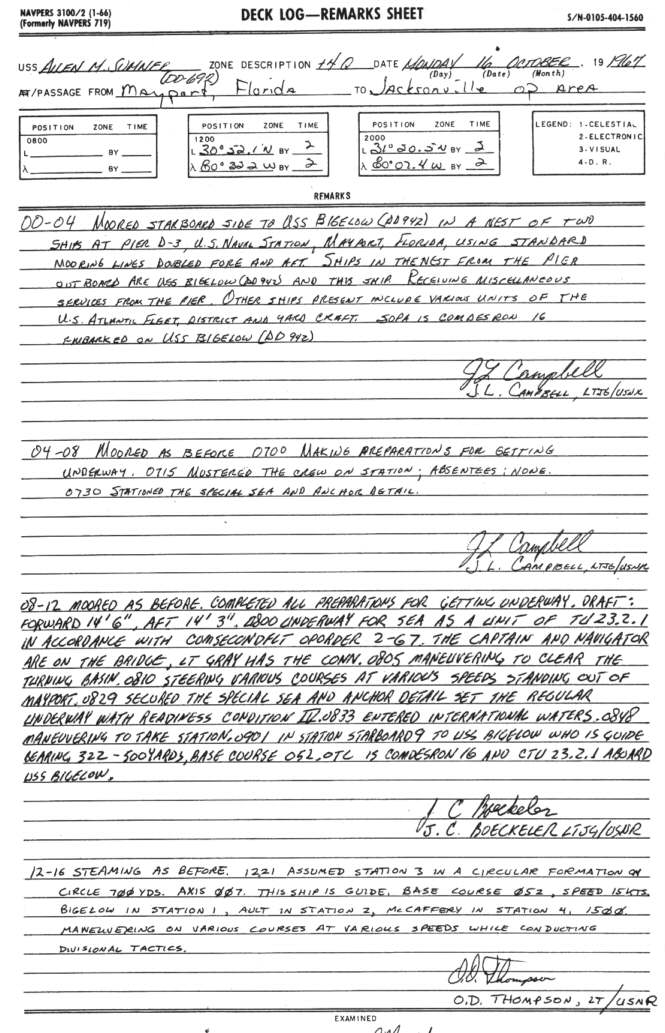 NAVPERS 3100/2 (1-66)
(Formerly NAVPERS 719)
DECK LOG—REMARKS SHEET
S/N-0105-404-1560
USS ALLEN M. SUMNER (DD-692) ZONE DESCRIPTION +4 Q DATE MONDAY 16 OCTOBER, 19 1967
(Day) (Date) (Month)
AT/PASSAGE FROM Mayport, Florida TO Jacksonville op Area
POSITION ZONE TIME
0800
L BY
λ BY
POSITION ZONE TIME
1200
L 30° 52.1'N BY 2
λ 80° 32.2 W BY 2
POSITION ZONE TIME
2000
L 31° 20.5'N BY 2
λ 80° 07.4 W BY 2
LEGEND: 1-CELESTIAL
2-ELECTRONIC
3-VISUAL
4-D. R.
REMARKS
00-04 MOORED STARBOARD SIDE TO USS BIGELOW (DD942) IN A NEST OF TWO
SHIPS AT PIER D-3, U.S. NAVAL STATION, MAYPORT, FLORIDA, USING STANDARD
MOORING LINES DOUBLED FORE AND AFT. SHIPS IN THE NEST FROM THE PIER
OUTBOARD ARE USS BIGELOW (DD942) AND THIS SHIP RECEIVING MISCELLANEOUS
SERVICES FROM THE PIER. OTHER SHIPS PRESENT INCLUDE VARIOUS UNITS OF THE
U.S. ATLANTIC FLEET, DISTRICT AND YARD CRAFT. SOPA IS COMDESRON 16
EMBARKED ON USS BIGELOW (DD 942)
JL Campbell
J. L. CAMPBELL, LTJG/USNR
04-08 MOORED AS BEFORE 0700 MAKING PREPARATIONS FOR GETTING
UNDERWAY. 0715 MUSTERED THE CREW ON STATION; ABSENTEES: NONE.
0730 STATIONED THE SPECIAL SEA AND ANCHOR DETAIL.
JL Campbell
J. L. CAMPBELL, LTJG/USNR
08-12 MOORED AS BEFORE. COMPLETED ALL PREPARATIONS FOR GETTING UNDERWAY. DRAFT:
FORWARD 14' 6", AFT 14' 3". 0800 UNDERWAY FOR SEA AS A UNIT OF TU 23.2.1
IN ACCORDANCE WITH COMSECONDFLT OPORDER 2-67. THE CAPTAIN AND NAVIGATOR
ARE ON THE BRIDGE, LT GRAY HAS THE CONN. 0805 MANEUVERING TO CLEAR THE
TURNING BASIN. 0810 STEERING VARIOUS COURSES AT VARIOUS SPEEDS STANDING OUT OF
MAYPORT. 0829 SECURED THE SPECIAL SEA AND ANCHOR DETAIL SET THE REGULAR
UNDERWAY WATH READINESS CONDITION IV. 0833 ENTERED INTERNATIONAL WATERS. 0848
MANEUVERING TO TAKE STATION. 0901 IN STATION STARBOARD 9 TO USS BIGELOW WHO IS GUIDE
BEARING 322 - 500 YARDS, BASE COURSE 052. OTC IS COMDESRON 16 AND CTU 23.2.1 ABOARD
USS BIGELOW.
J C Boeckeler
J. C. BOECKELER LTJG/USNR
12-16 STEAMING AS BEFORE. 1221 ASSUMED STATION 3 IN A CIRCULAR FORMATION ON
CIRCLE 700 YDS. AXIS 007. THIS SHIP IS GUIDE. BASE COURSE 052, SPEED 15KTS.
BIGELOW IN STATION 1, AULT IN STATION 2, MCCAFFERY IN STATION 4. 1500.
MANEUVERING ON VARIOUS COURSES AT VARIOUS SPEEDS WHILE CONDUCTING
DIVISIONAL TACTICS.
O.D. Thompson
O.D. THOMPSON, LT/USNR
EXAMINED